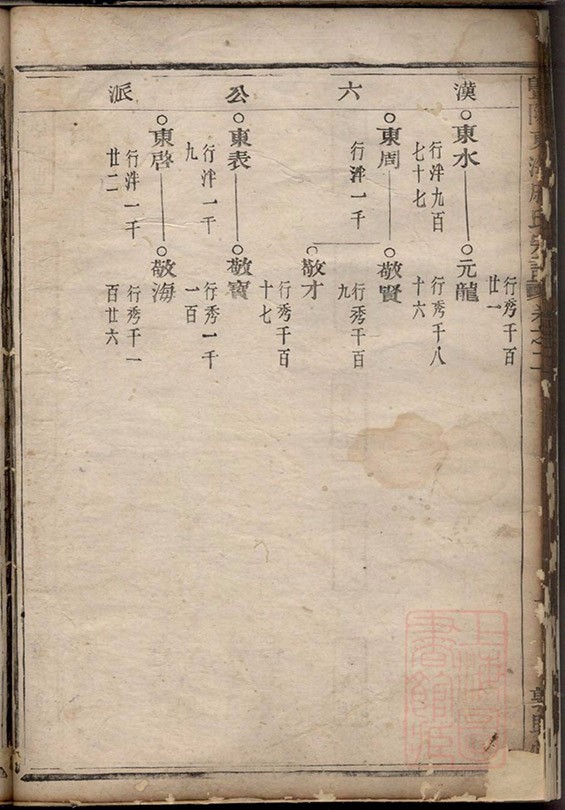 東海
氏宗譜
卷之二
漢六公派
行秀千百
廿一
東水
行泮九百
七十七
元龍
行秀千八
十六
東周
行泮一千
敬賢
行秀千百
九
敬才
行秀千百
十七
東表
行泮一千
九
敬寶
行秀一千
一百
東啓
行泮一千
廿二
敬海
行秀千一
百廿六